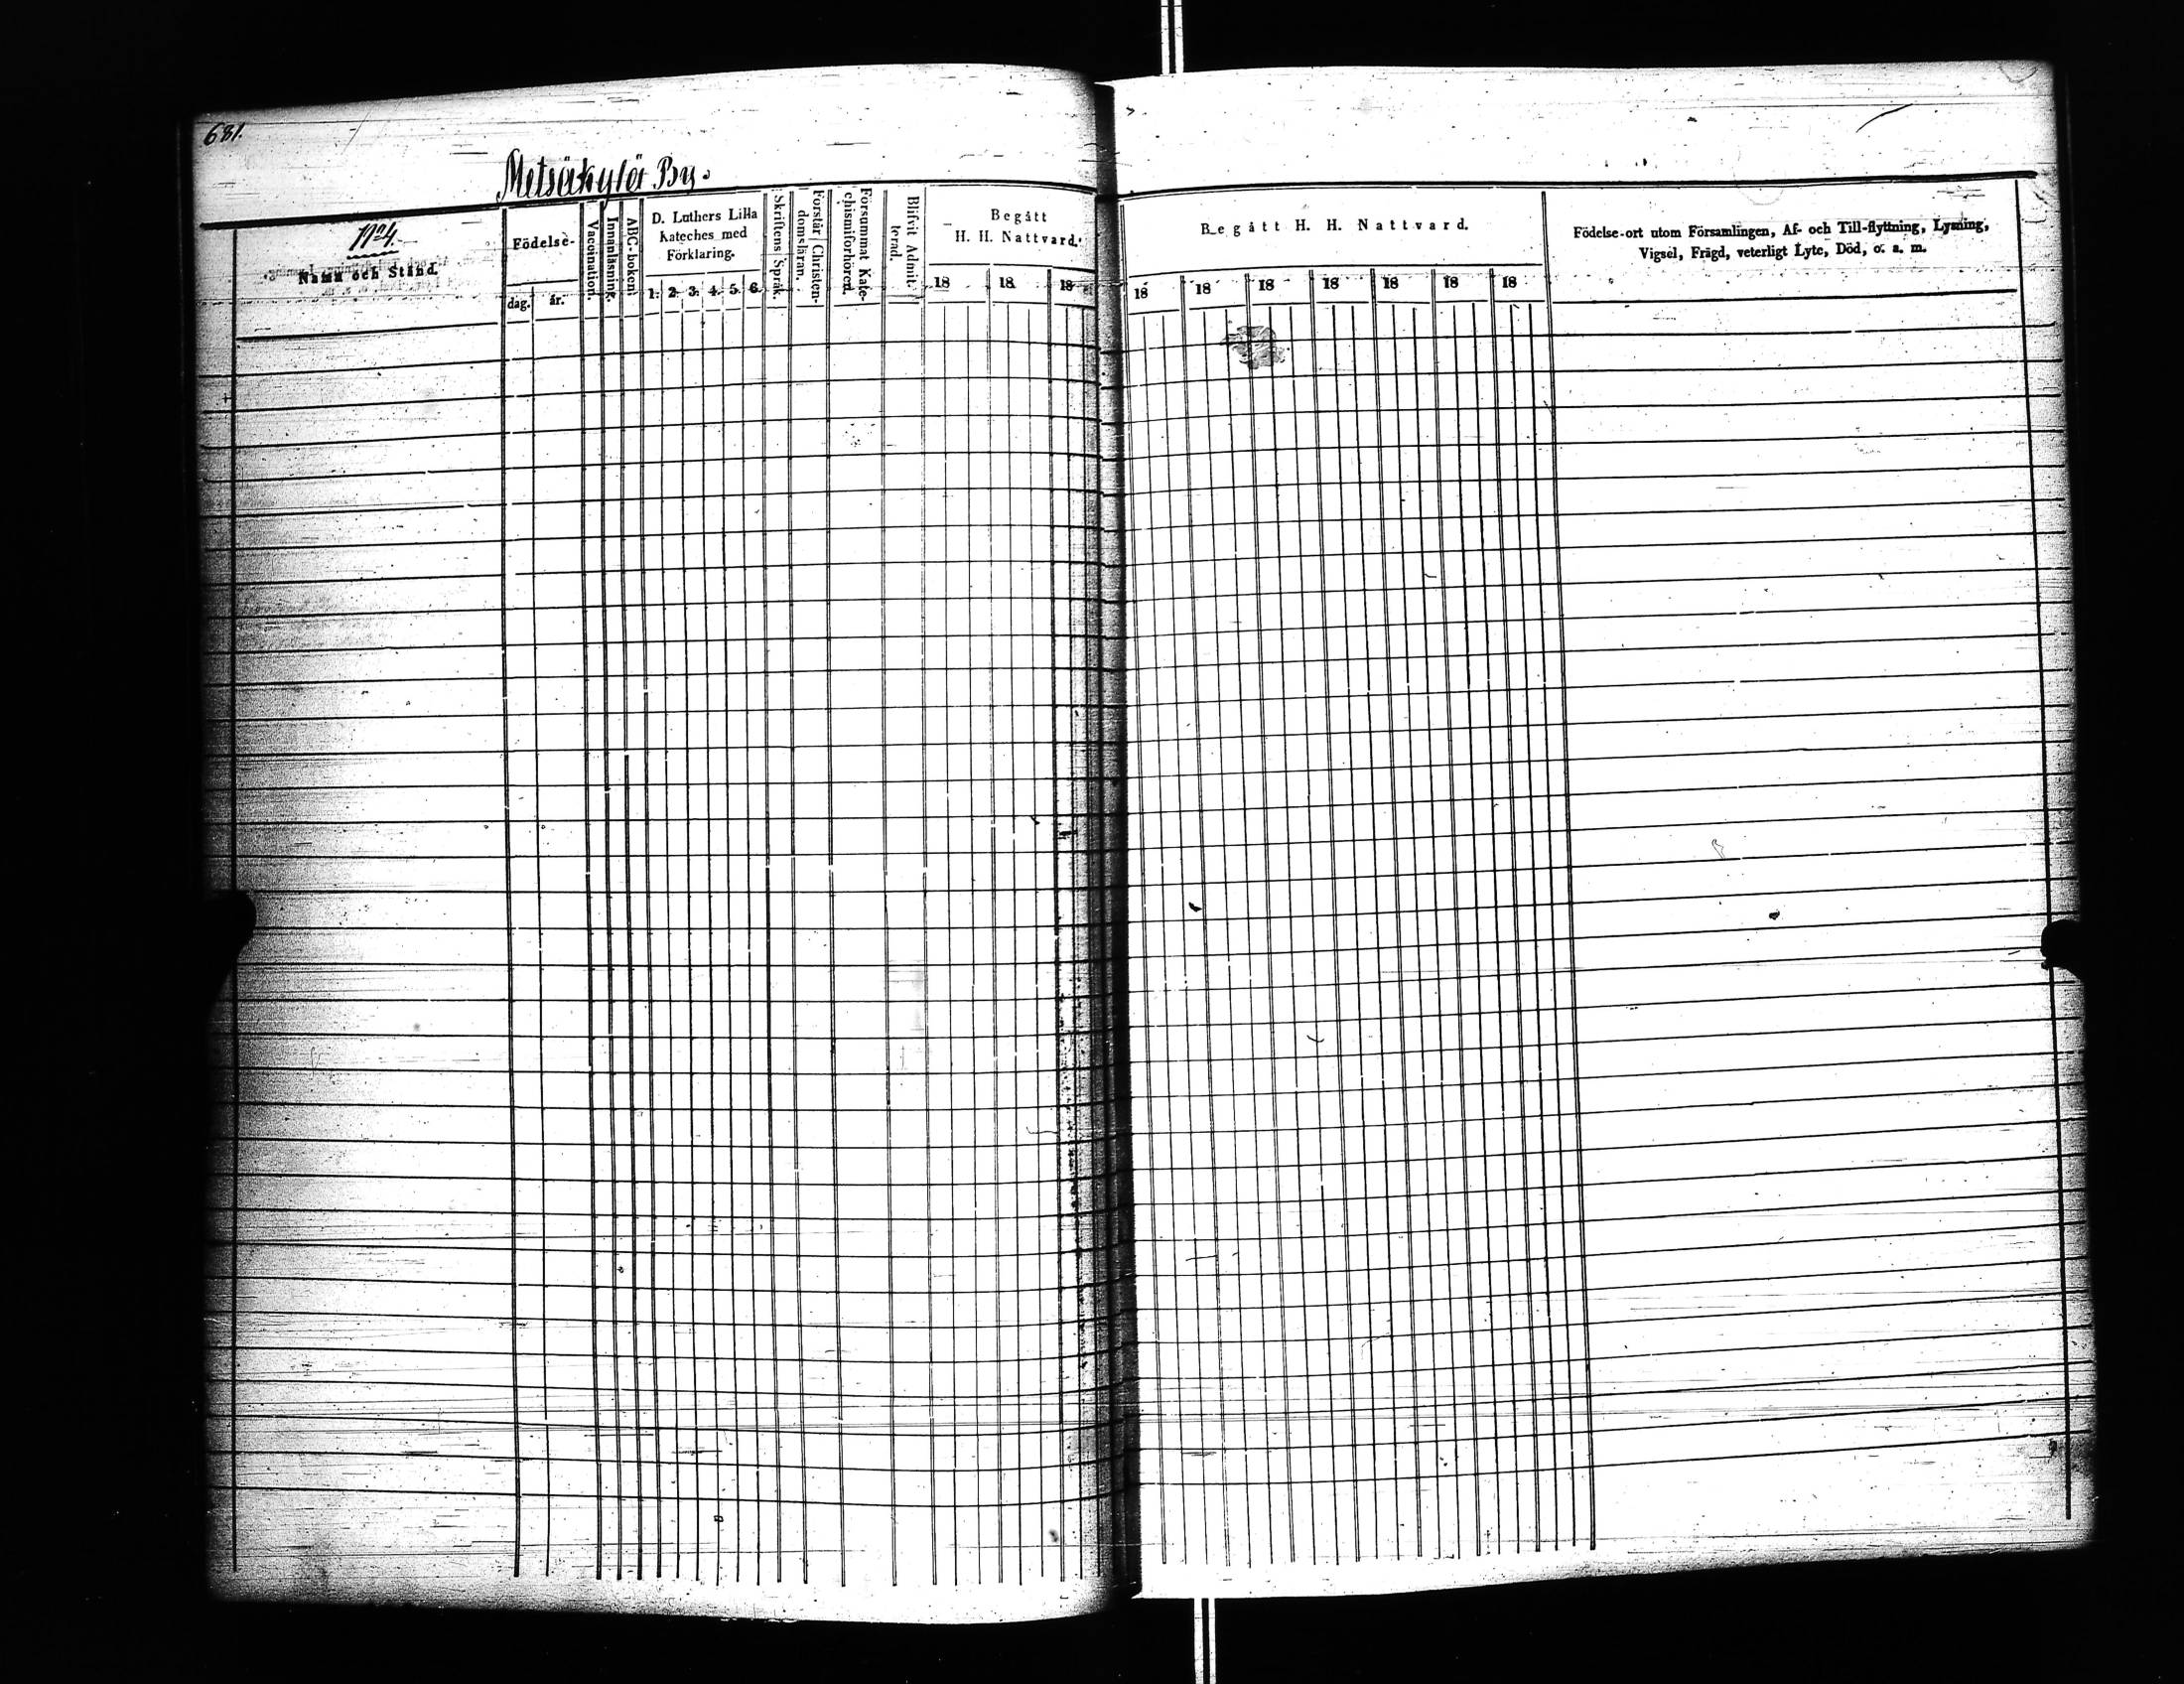 681.
Metsäkylä By.
No 4.
Namn och Stånd.
Födelse-
dag. år.
Vaccination.
Innanläsning.
ABC-boken.
D. Luthers Lilla
Kateches med
Förklaring.
1. 2. 3. 4. 5. 6.
Skriftens Språk.
Förstår Christen-
domsläran.
Försummat Kate-
chismiförhören.
Blifvit Admit-
terad.
Begått
H. H. Nattvard.
18 18 18
Begått H. H. Nattvard.
18 18 18 18 18 18 18
Födelse-ort utom Församlingen, Af- och Till-flyttning, Lysning,
Vigsel, Frägd, veterligt Lyte, Död, o. a. m.